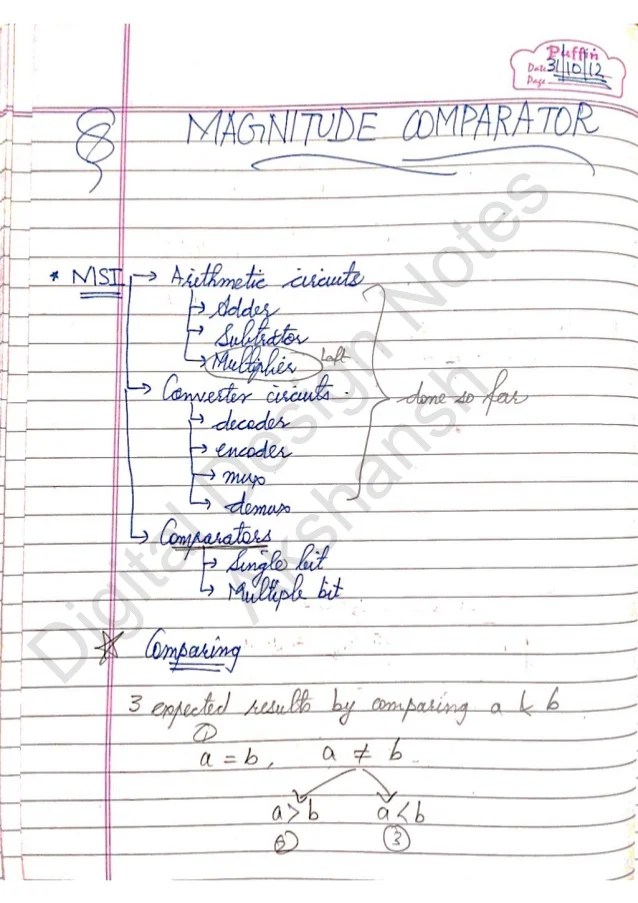 Puffin
Date 31/10/12
Page
MAGNITUDE COMPARATOR
* MSI → Arithmetic circuits
→ Adder
→ Subtrator
→ Multiplier left
→ Converter circuits. done so far
→ decoder
→ encoder
→ mux
→ demux
→ Comparators
→ Single bit
→ Multiple bit
Comparing
3 expected results by comparing a & b
①
a = b, a ≠ b
a > b a < b
② ③
Digital Design Notes
Akshansh